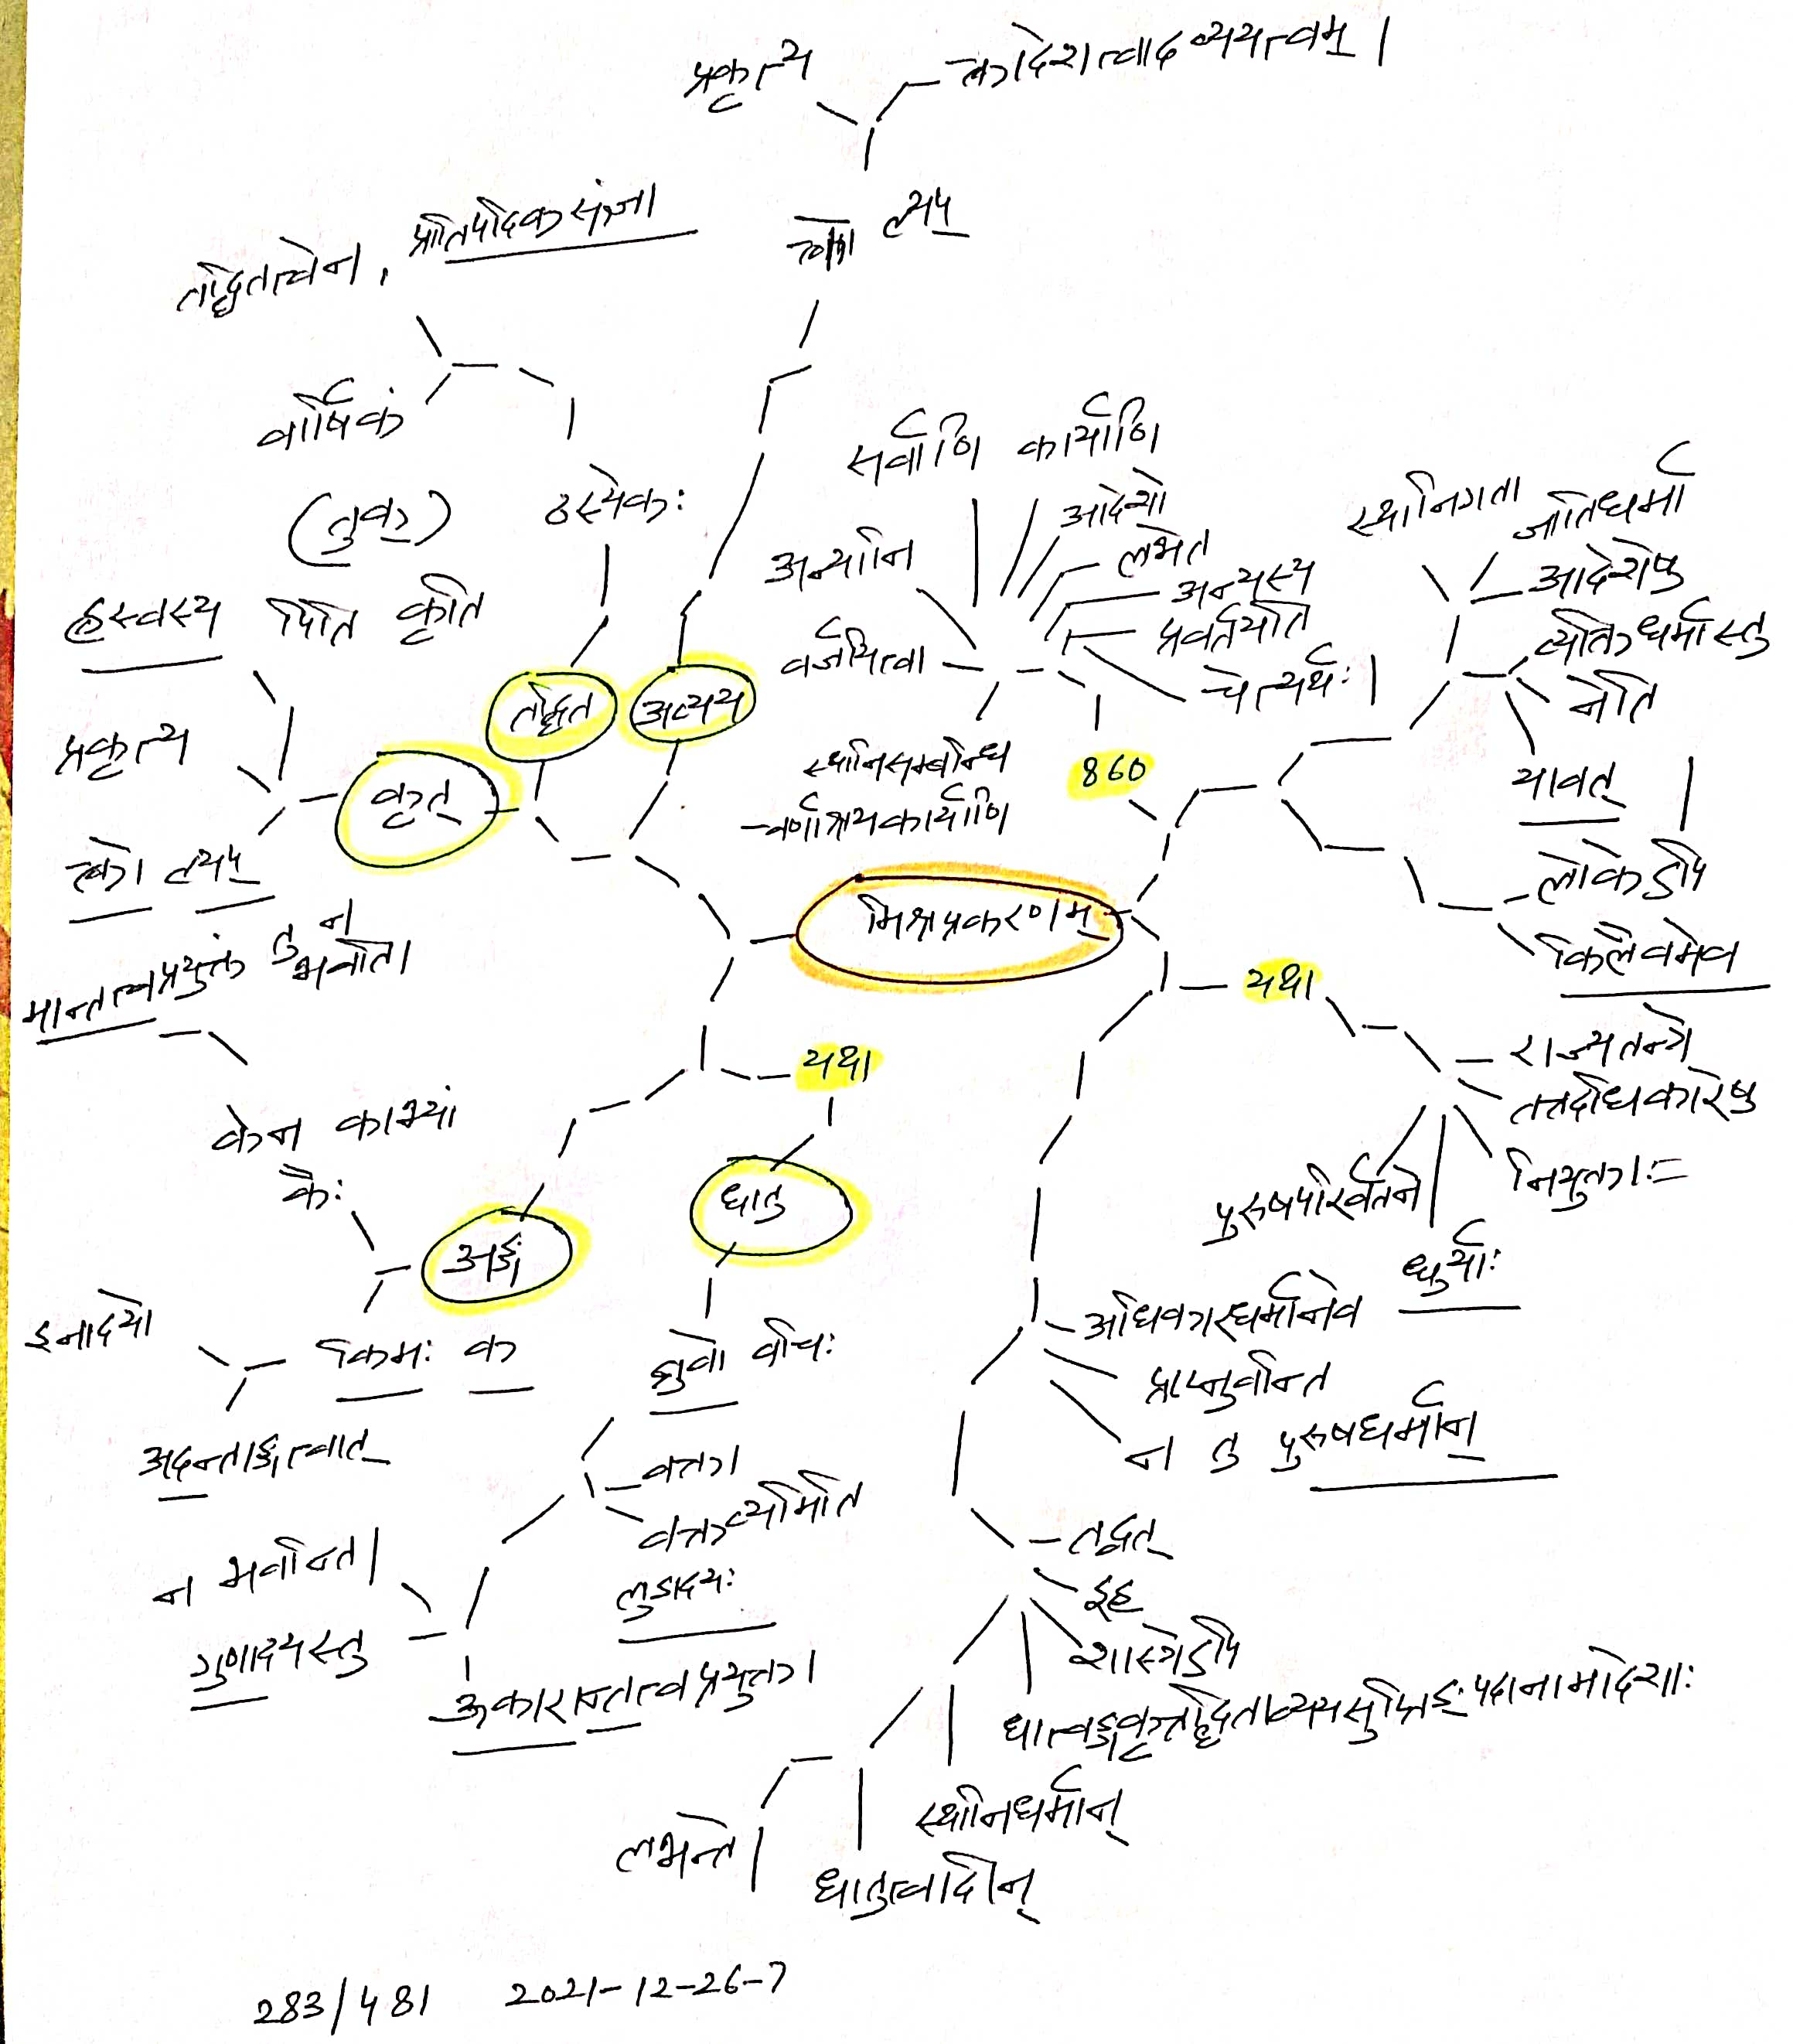 प्रकृत्य
क्त्वादेशत्वादव्ययत्वम् ।
क्त्वो ल्यप्
तद्धितत्वेन, प्रातिपदिकसंज्ञा
वार्षिकं
ठस्येकः
(तुक्)
ह्रस्वस्य पिति कृति
प्रकृत्य
क्त्वो ल्यप्
कृत्
तद्धित
अव्यय
सर्वाणि कार्याणि
अन्यानि
आदेशो
लभेत
अन्यस्य
प्रवर्तयति
चेत्यर्थः ।
वर्जयित्वा
स्थानिसम्बन्धि
-वर्णाश्रयकार्याणि
860
स्थानिगता
जातिधर्मा
आदेशेषु
व्यक्तिधर्मास्तु
नेति
यावत् ।
लोकेऽपि
किलैवमेव
मिश्रप्रकरणम्
यथा
राज्यतन्त्रे
तत्तदधिकारेषु
नियुक्ताः=
धुर्याः
पुरुषपरिवर्तने
अधिकारधर्मानेव
प्राप्नुवन्ति
न तु पुरुषधर्मान्
तद्वत्
इह
शास्त्रेऽपि
धात्वङ्गकृत्तद्धिताव्ययसुप्तिङ्पदानामादेशाः
स्थानिधर्मान्
धातुत्वादीन्
लभन्ते ।
यथा
धातु
ब्रुवो वचिः
वक्ता
वक्तव्यमिति
लुडादयः
ऊकारान्तत्वप्रयुक्ता
गुणादयस्तु
न भवन्ति ।
अङ्गं
किमः क
केन काभ्यां
कैः
इनादयो
अदन्ताङ्गत्वात्
मान्तत्वप्रयुक्तं तु न
भवति ।
283/481 2021-12-26-7